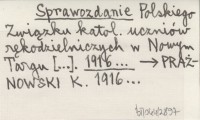 Sprawozdanie Polskiego
Związku katol. uczniów
rękodzielniczych w Nowym
Targu [...]. 1916... → PRAŻ-
NOWSKI K. 1916...